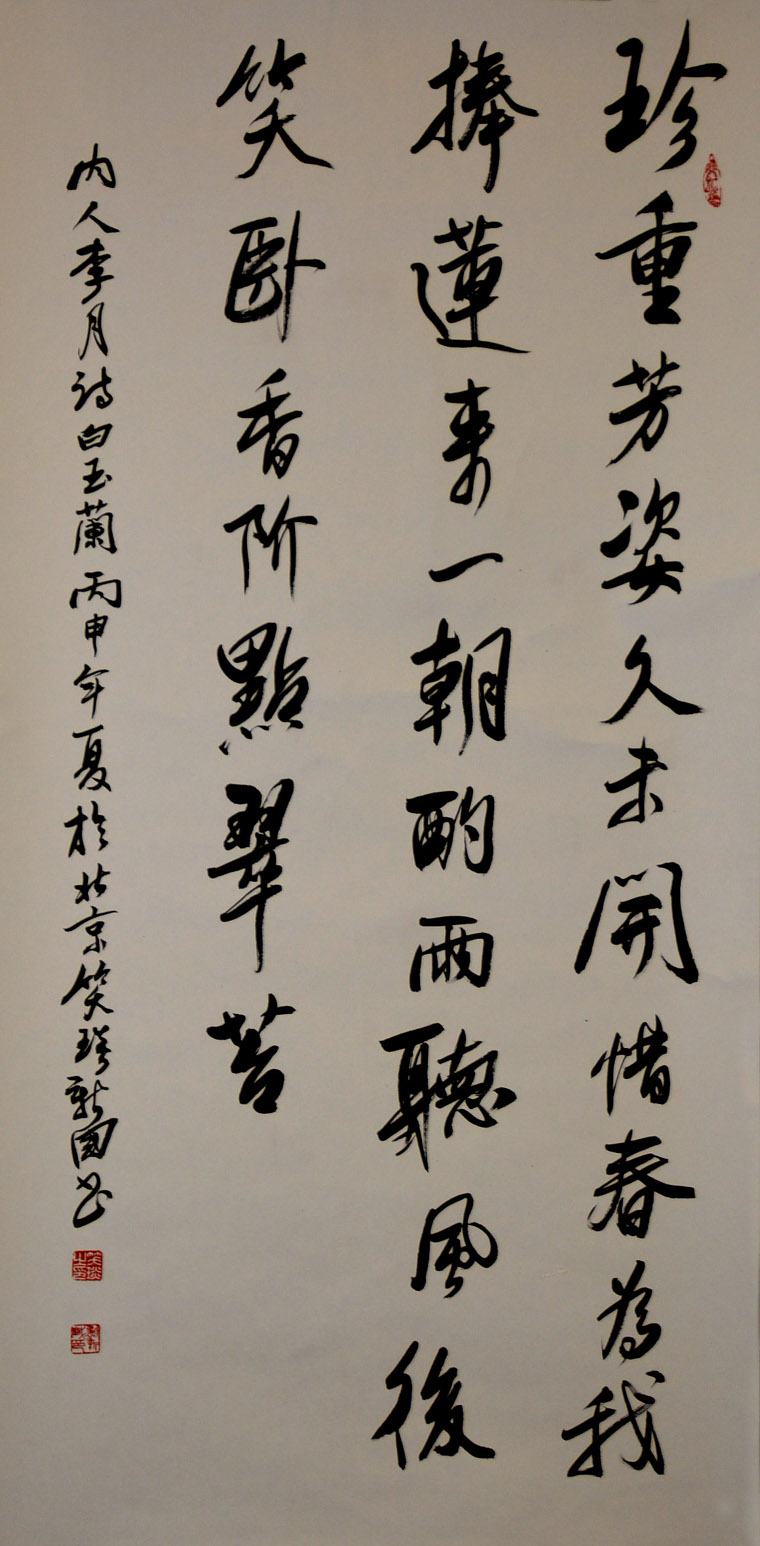 珍重芳姿久未開惜春為我
捧蓮來一朝酌雨聽風後
笑卧香阶點翠苔
内人李月詩白玉蘭丙申年夏於北京笑琰新国书